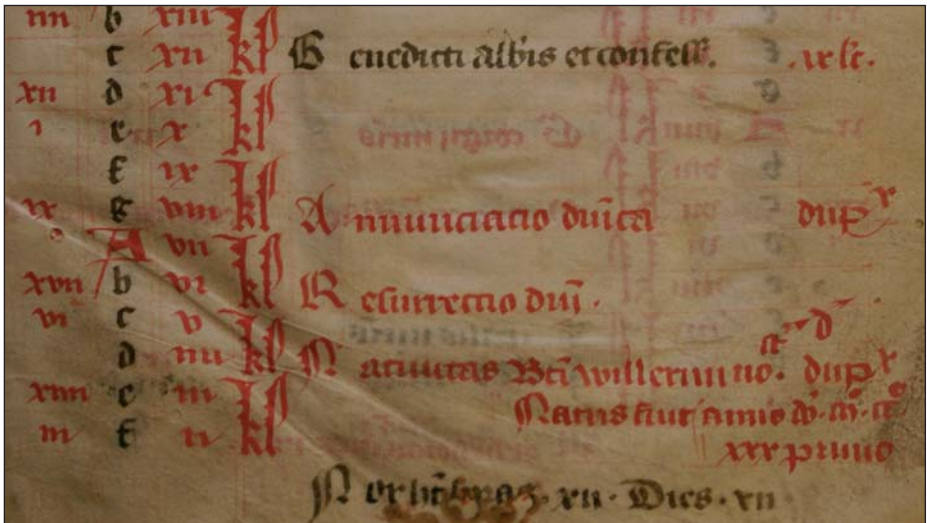 iiii b xiii kl
c xii kl Benedicti abbis et confess. .ix lc.
xii d xi kl
i e x kl
f ix kl
ix g viii kl Annunciacio dnica dup x
A vii kl
xvii b vi kl Resurrectio dni .
vi c v kl
d iiii kl Nativitas Bti willermi
xiiii e iii kl Natus fuit anno
iii f ii kl xxx primo
Nox xii . Dies . xii